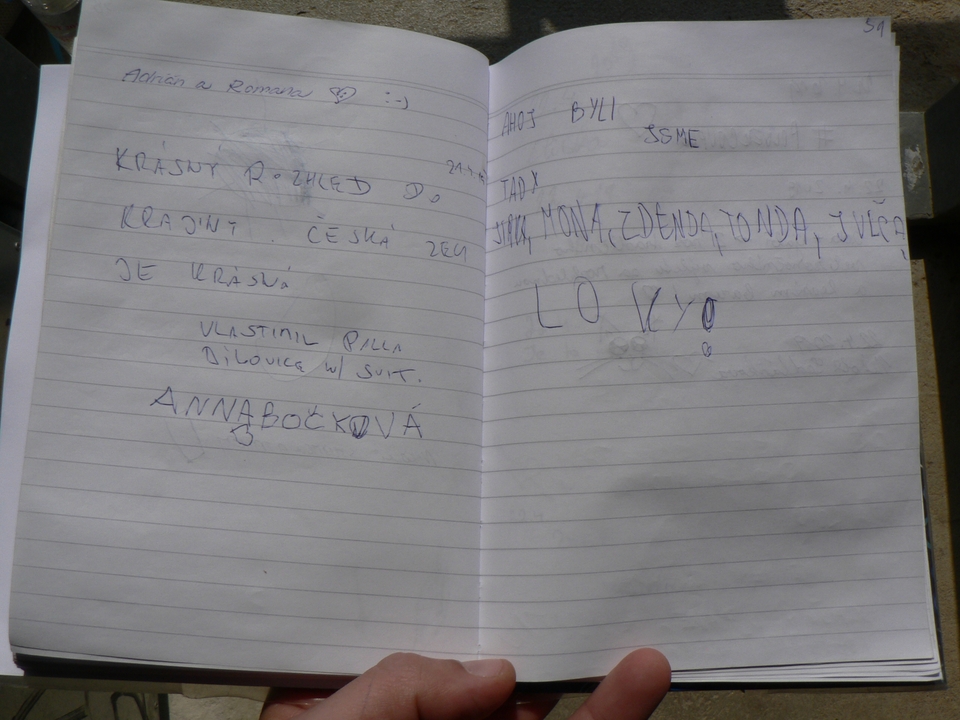 Adrian a Romana :-)
KRÁSNÝ ROZHLED DO
KRAJINY. ČESKÁ ZEM
JE KRÁSNÁ
VLASTIMIL PILLA
SVIT.
ANNA BOČKOVÁ
51
AHOJ BYLI
JSME
TADY
MONA, ZDENDA, TONDA, JULČA
LO